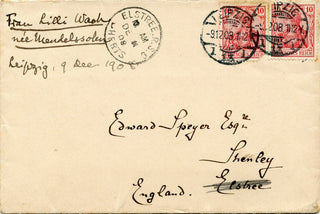 Frau Lilli Wach
née Mendelssohn
Leipzig 9 Dec 1908
ELSTREE R.S.O.
HERTS
AM
DE
08
LEIPZIG
-9.12.08
10
10
Edward Speyer Esqre.
Shenley
Elstree
England.